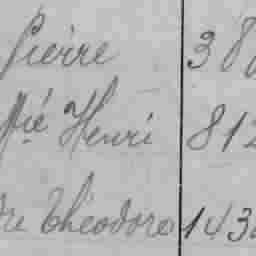 Pierre 38
Mié Henri 812
Théodore 143